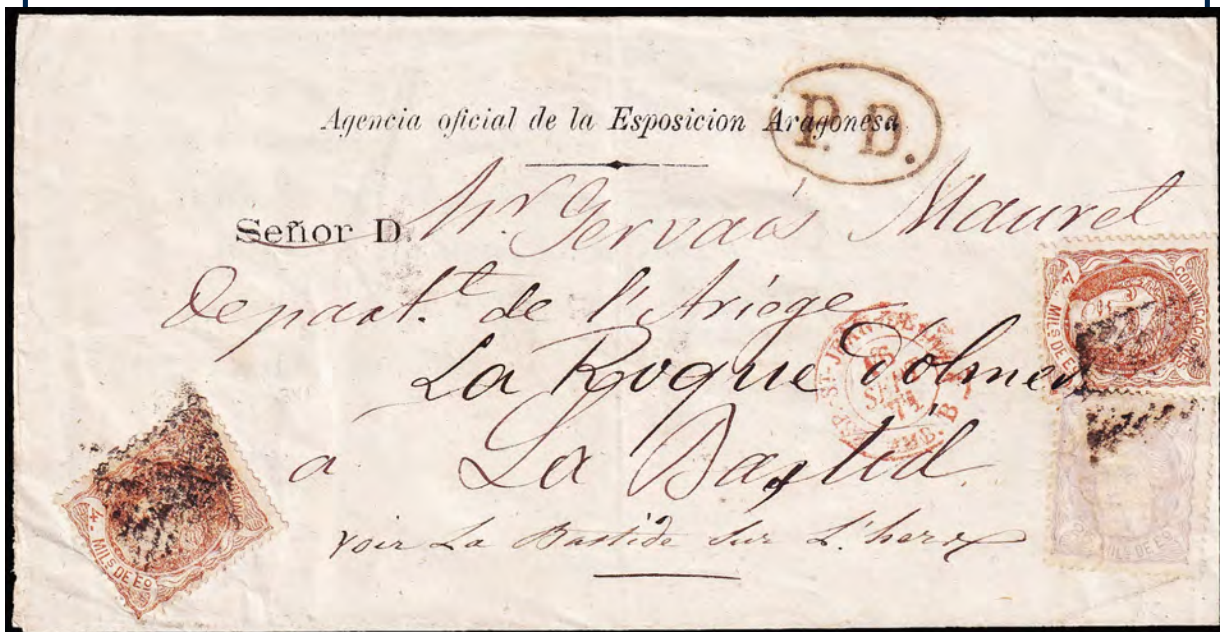 Agencia oficial de la Esposicion Aragonesa
P. D.
Señor D. Mr Gervais Maurel
Depart.t de l'Ariége
La Roque Dolmes
a La Bastid
voir La Bastide sur L'hers
COMUNICACIONES
4 MILS DE Eo
MILS DE Eo
4. MILS DE Eo